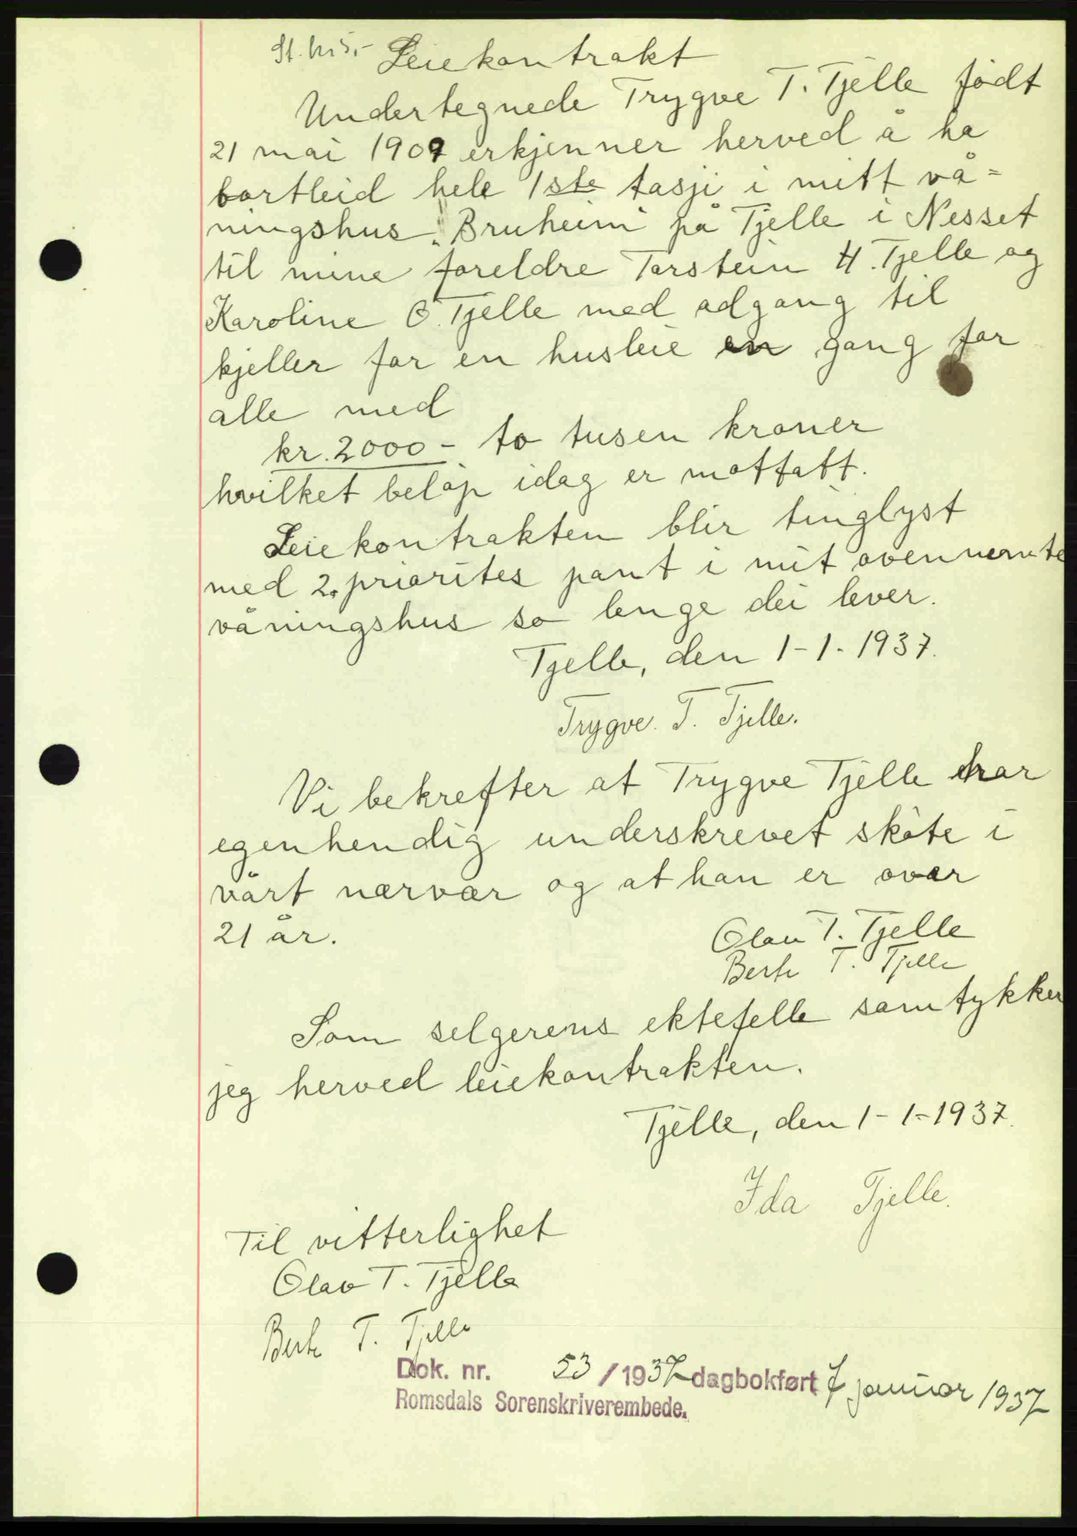 St. kr 5,-
Leiekontrakt
Undertegnede Trygve T. Tjelle født
21 mai 1909 erkjenner herved å ha
bortleid hele 1ste tasji i mitt vå=
ningshus „Bruheim" på Tjelle i Nesset
til mine foreldre Torstein H. Tjelle og
Karoline O. Tjelle med adgang til
kjeller for en husleie en gang for
alle med
kr. 2000 - to tusen kroner
hvilket beløp idag er mottatt.
Leiekontrakten blir tinglyst
med 2. priorites pant i mit ovennemte
våningshus so lenge dei lever.
Tjelle, den 1-1-1937.
Trygve T. Tjelle.
Vi bekrefter at Trygve Tjelle har
egenhendig underskrevet skøte i
vårt nærvær og at han er over
21 år.
Olav T. Tjelle
Berte T. Tjelle
Som selgerens ektefelle samtykker
jeg herved leiekontrakten.
Tjelle, den 1-1-1937.
Ida Tjelle.
Til vitterlighet
Olav T. Tjelle
Berte T. Tjelle
Dok. nr. 53 / 1937 dagbokført 7 januar 1937
Romsdals Sorenskriverembede.